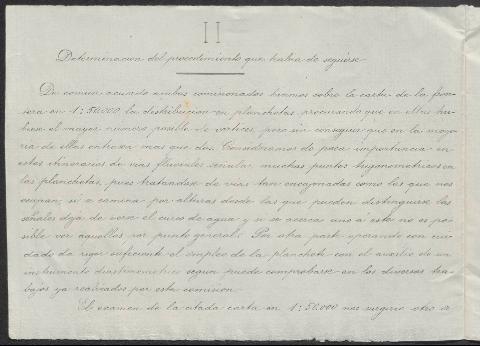 II
Determinacion del procedimiento que habia de seguirse
De comun acuerdo ambos comisionados hicimos sobre la carta de la fron
tera en 1:50.000 la distribucion en planchetas, procurando que en ellas hu
biese el mayor numero posible de vertices, pero sin conseguir que en la mayo
ria de ellas entrasen mas que dos. Consideramos de poca importancia en
estos itinerarios de vias fluviales señalar muchos puntos trigonometricos en
las planchetas, pues tratandose de vias tan encajonadas como los que nos
ocupan; si se camina por alturas desde las que pueden distinguirse las
señales deja de verse el curso de agua y si se acerca uno a este no es po
sible ver aquellos por punto general. Por otra parte operando con cui
dado da rigor suficiente el empleo de la plancheta con el auxilio de un
instrumento diastimometrico segun puede comprobarse en los diversos tra
bajos ya realizados por esta comision.
El examen de la citada carta en 1:50.000 nos sugirio otro